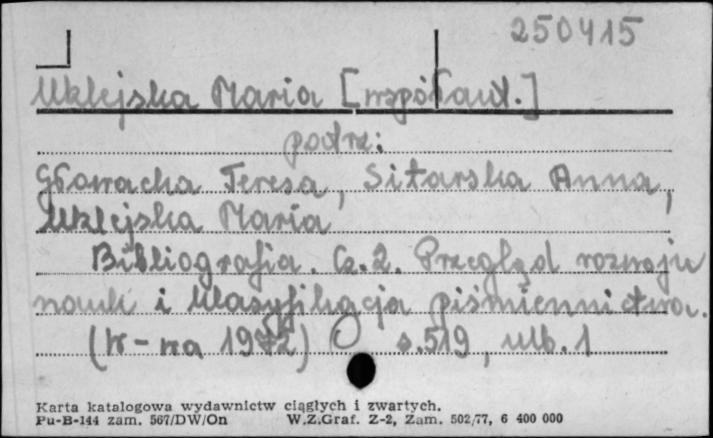 250415
Uklejska Maria [współaut.]
podrz:
Głowacka Teresa, Sitarska Anna,
Uklejska Maria
Bibliografia. Cz. 2. Przegląd rozwoju
nauk i klasyfikacja piśmiennictwa.
(W-wa 1972) s. 519, ulb. 1
Karta katalogowa wydawnictw ciągłych i zwartych.
Pu-B-144 zam. 567/DW/On W.Z.Graf. Z-2, Zam. 502/77, 6 400 000